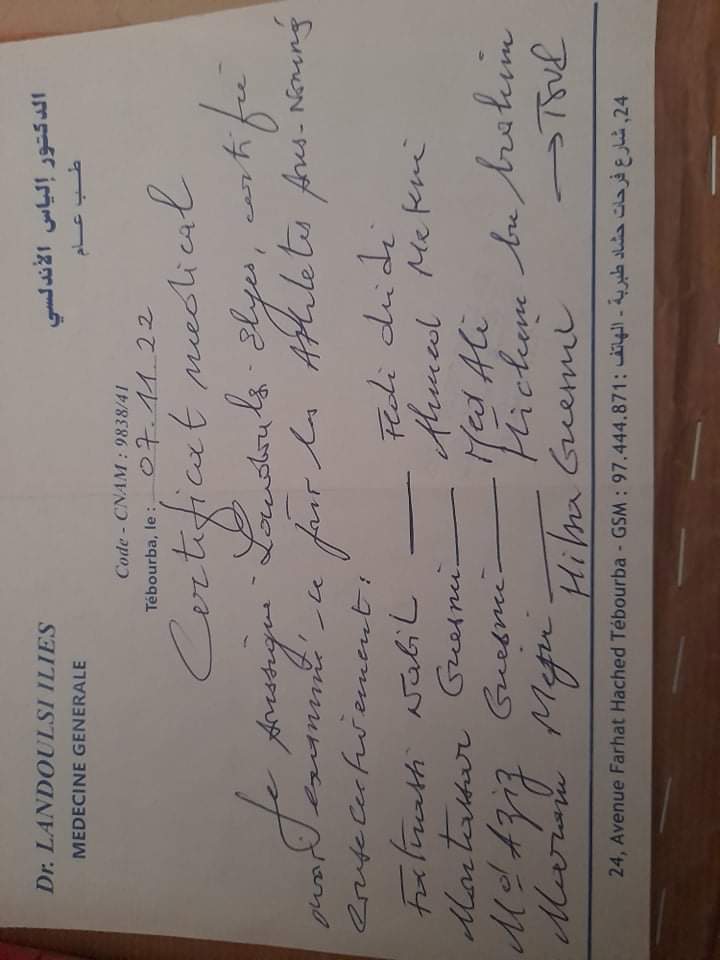 Dr. LANDOULSI ILIES
MEDECINE GENERALE
الدكتور إلياس الأندلسي
طب عام
Code - CNAM : 9838/41
Tébourba, le : 07.11.22
Certificat medical
Je soussigné Landoulsi Elyes, certifie
avoir examiné, ce jour les Athletes
consecutivement :
Nabil — Fedi dridi
Montassar Guesmi — Ahmed
Md Aziz Guesmi — Med Ali
Meriam Mejri — Hichem ben brahim
Hiba Guesmi →
24, Avenue Farhat Hached Tébourba - GSM : 97.444.871 : الهاتف - شارع فرحات حشاد طبربة ,24